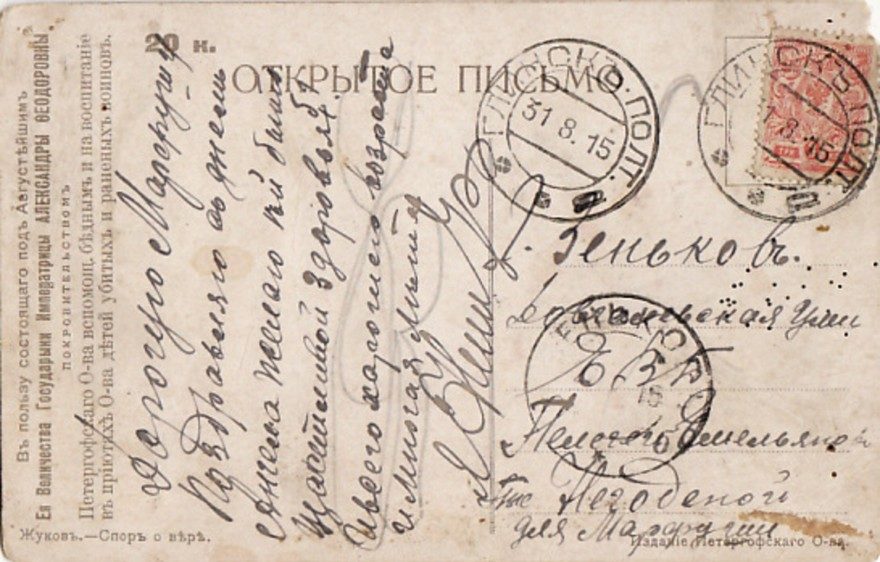 Въ пользу состоящаго подъ Августѣйшимъ
Ея Величества Государыни Императрицы АЛЕКСАНДРЫ ѲЕОДОРОВНЫ
покровительствомъ
Петергофскаго О-ва вспомощ. бѣднымъ и на воспитаніе
въ пріютахъ О-ва дѣтей убитыхъ и раненыхъ воиновъ.
Жуковъ.—Споръ о вѣрѣ.
20 к.
ОТКРЫТОЕ ПИСЬМО
Дорогую Марфушу
Поздравляю съ днемъ
Ангела желаю ей быть
щастливой здоровья
всего хорошего
и многая лѣта
ГЛИНСКЪ·ПОЛТ.
31 8.15
ГЛИНСКЪ ПОЛТ.
8.15
г. Зеньковъ.
Улш
ЕНЬКОВ
15
Пелагеи Омельянов
Негоденой
для Марфуши
Изданіе Петергофскаго О-ва.